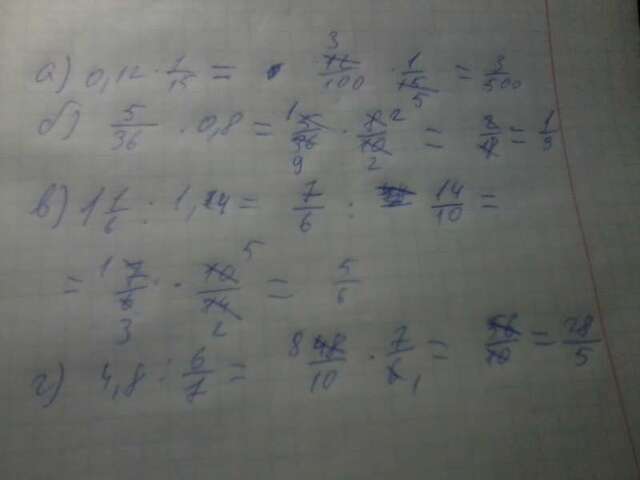 а) 0,12 · 1/15 = 3 12/100 · 1/15 5 = 3/500
б) 5/36 · 0,8 = 1 5/36 9 · 8/10 2 2 = 2/9 = 1/9
в) 1 1/6 : 1,4 = 7/6 : 14/10 =
= 1 7/6 3 · 10/14 5 2 = 5/6
г) 4,8 : 6/7 = 8 48/10 · 7/6 1 = 56/10 = 28/5